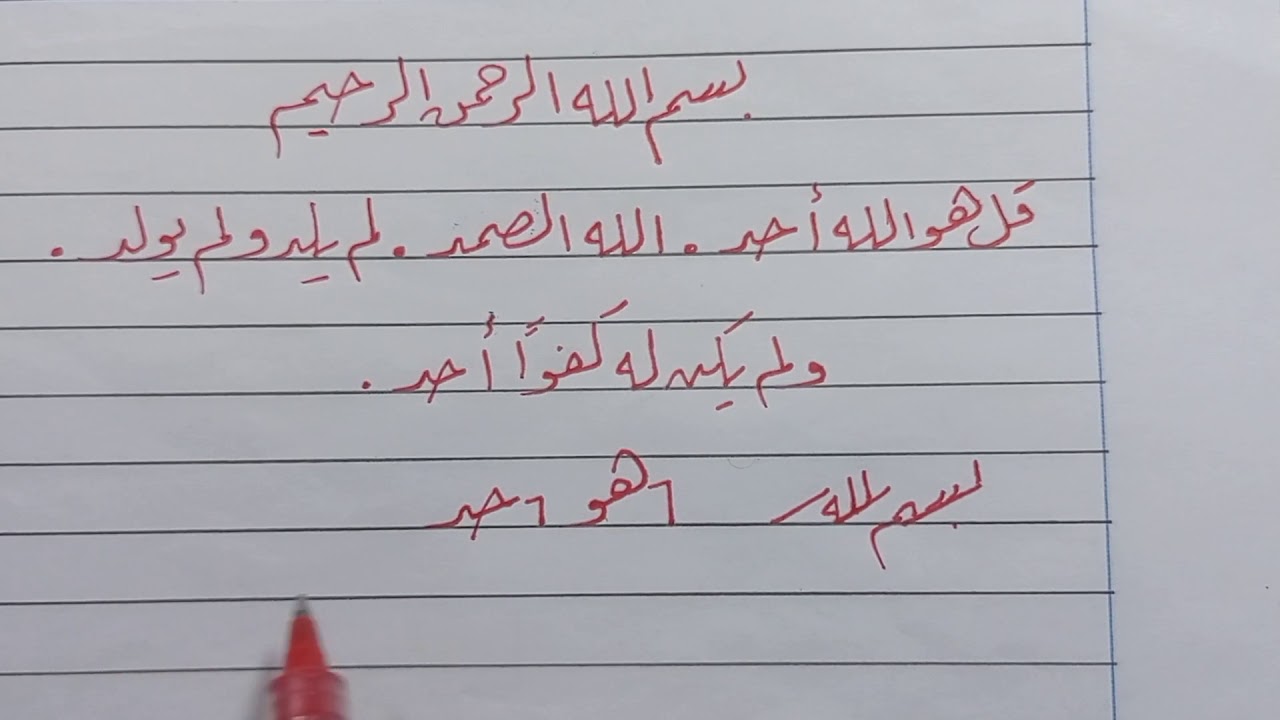 بسم الله الرحمن الرحيم
قل هو الله أحد . الله الصمد . لم يلد ولم يولد .
ولم يَكن له كَفوًا أُحد .
بسم لله هو حد